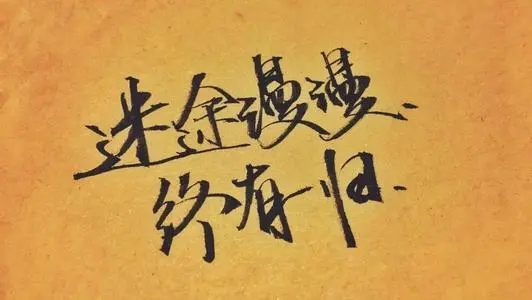 迷途漫漫.
终有归.